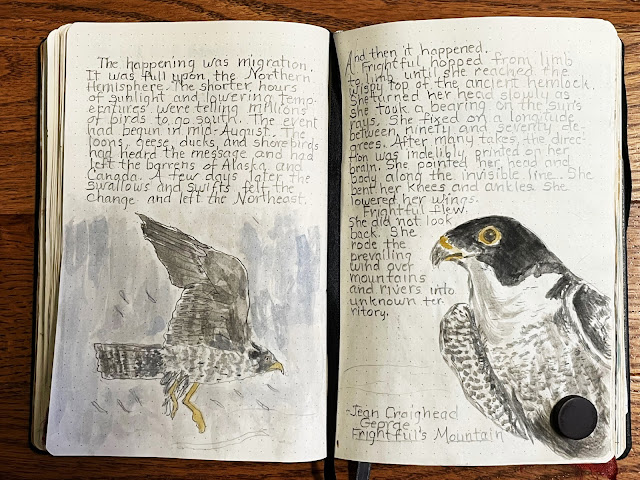 The happening was migration.
It was full upon the Northern
Hemisphere. The shorter hours
of sunlight and lowering temp-
eratures were telling millions
of birds to go south. The event
had begun in mid-August. The
loons, geese, ducks, and shore birds
had heard the message and had
left the barrens of Alaska and
Canada. A few days later the
swallows and swifts felt the
change and left the Northeast.
And then it happened.
Frightful hopped from limb
to limb until she reached the
wispy top of the ancient hemlock.
She turned her head slowly as
she took a bearing on the sun's
rays. She fixed on a longitude
between ninety and seventy de-
grees. After many takes, the direc-
tion was indelibly printed on her
brain. She pointed her head and
body along the invisible line. She
bent her knees and ankles. She
lowered her wings.
Frightful flew.
She did not look
back. She
rode the
prevailing
wind over
mountains
and rivers into
unknown ter-
ritory.
~Jean Craighead
George,
Frightful's Mountain